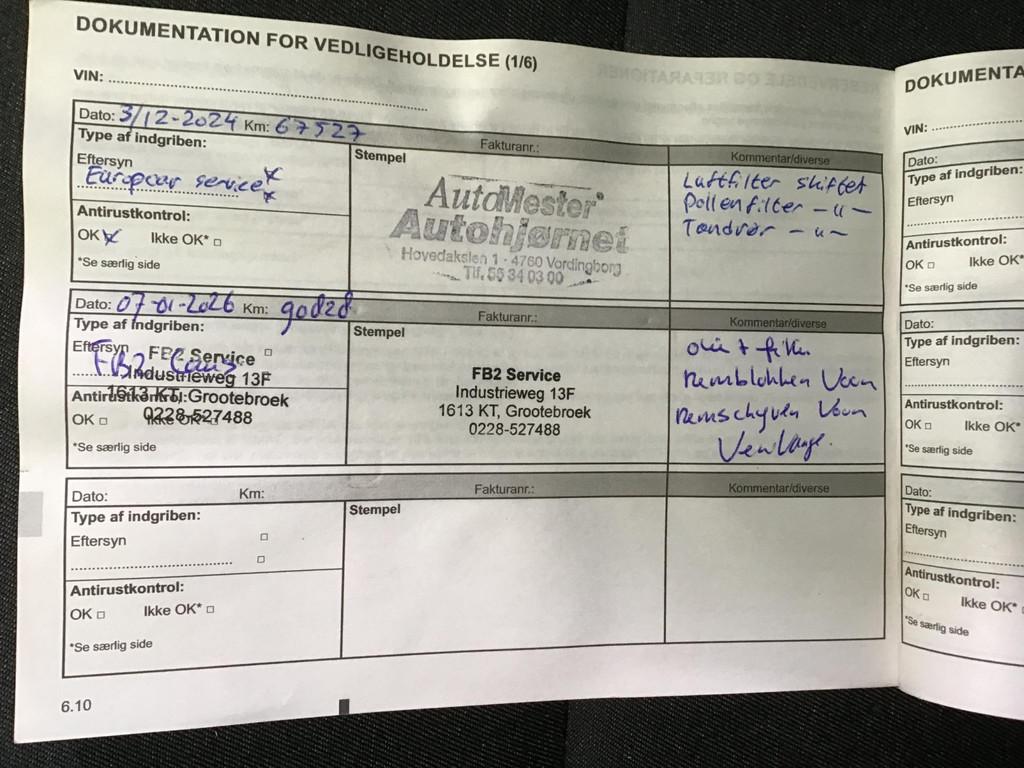 DOKUMENTATION FOR VEDLIGEHOLDELSE (1/6)
VIN:
Dato: 3/12-2024 Km: 67527
Fakturanr.:
Kommentar/diverse
Type af indgriben:
Eftersyn
Europcar service
Antirustkontrol:
OK Ikke OK*
*Se særlig side
Stempel
AutoMester
Autohjørnet
Hovedakslen 1 - 4760 Vordingborg
Tlf. 55 34 03 00
Luftfilter skiftet
Pollenfilter -u-
Tændrør -u-
Dato: 07-01-2026 Km:
Fakturanr.:
Kommentar/diverse
Type af indgriben:
Eftersyn
FB2
FB2 Service
Industrieweg 13F
1613 KT, Grootebroek
0228-527488
Antirustkontrol:
OK Ikke OK*
*Se særlig side
Stempel
FB2 Service
Industrieweg 13F
1613 KT, Grootebroek
0228-527488
olie + filter
Remblokken Voor
Remschyven Voor
Dato: Km:
Fakturanr.:
Kommentar/diverse
Type af indgriben:
Eftersyn
Antirustkontrol:
OK Ikke OK*
*Se særlig side
Stempel
6.10
DOKUMENTA
VIN:
Dato:
Type af indgriben:
Eftersyn
Antirustkontrol:
OK Ikke OK*
*Se særlig side
Dato:
Type af indgriben:
Eftersyn
Antirustkontrol:
OK Ikke OK*
*Se særlig side
Dato:
Type af indgriben:
Eftersyn
Antirustkontrol:
OK Ikke OK*
*Se særlig side